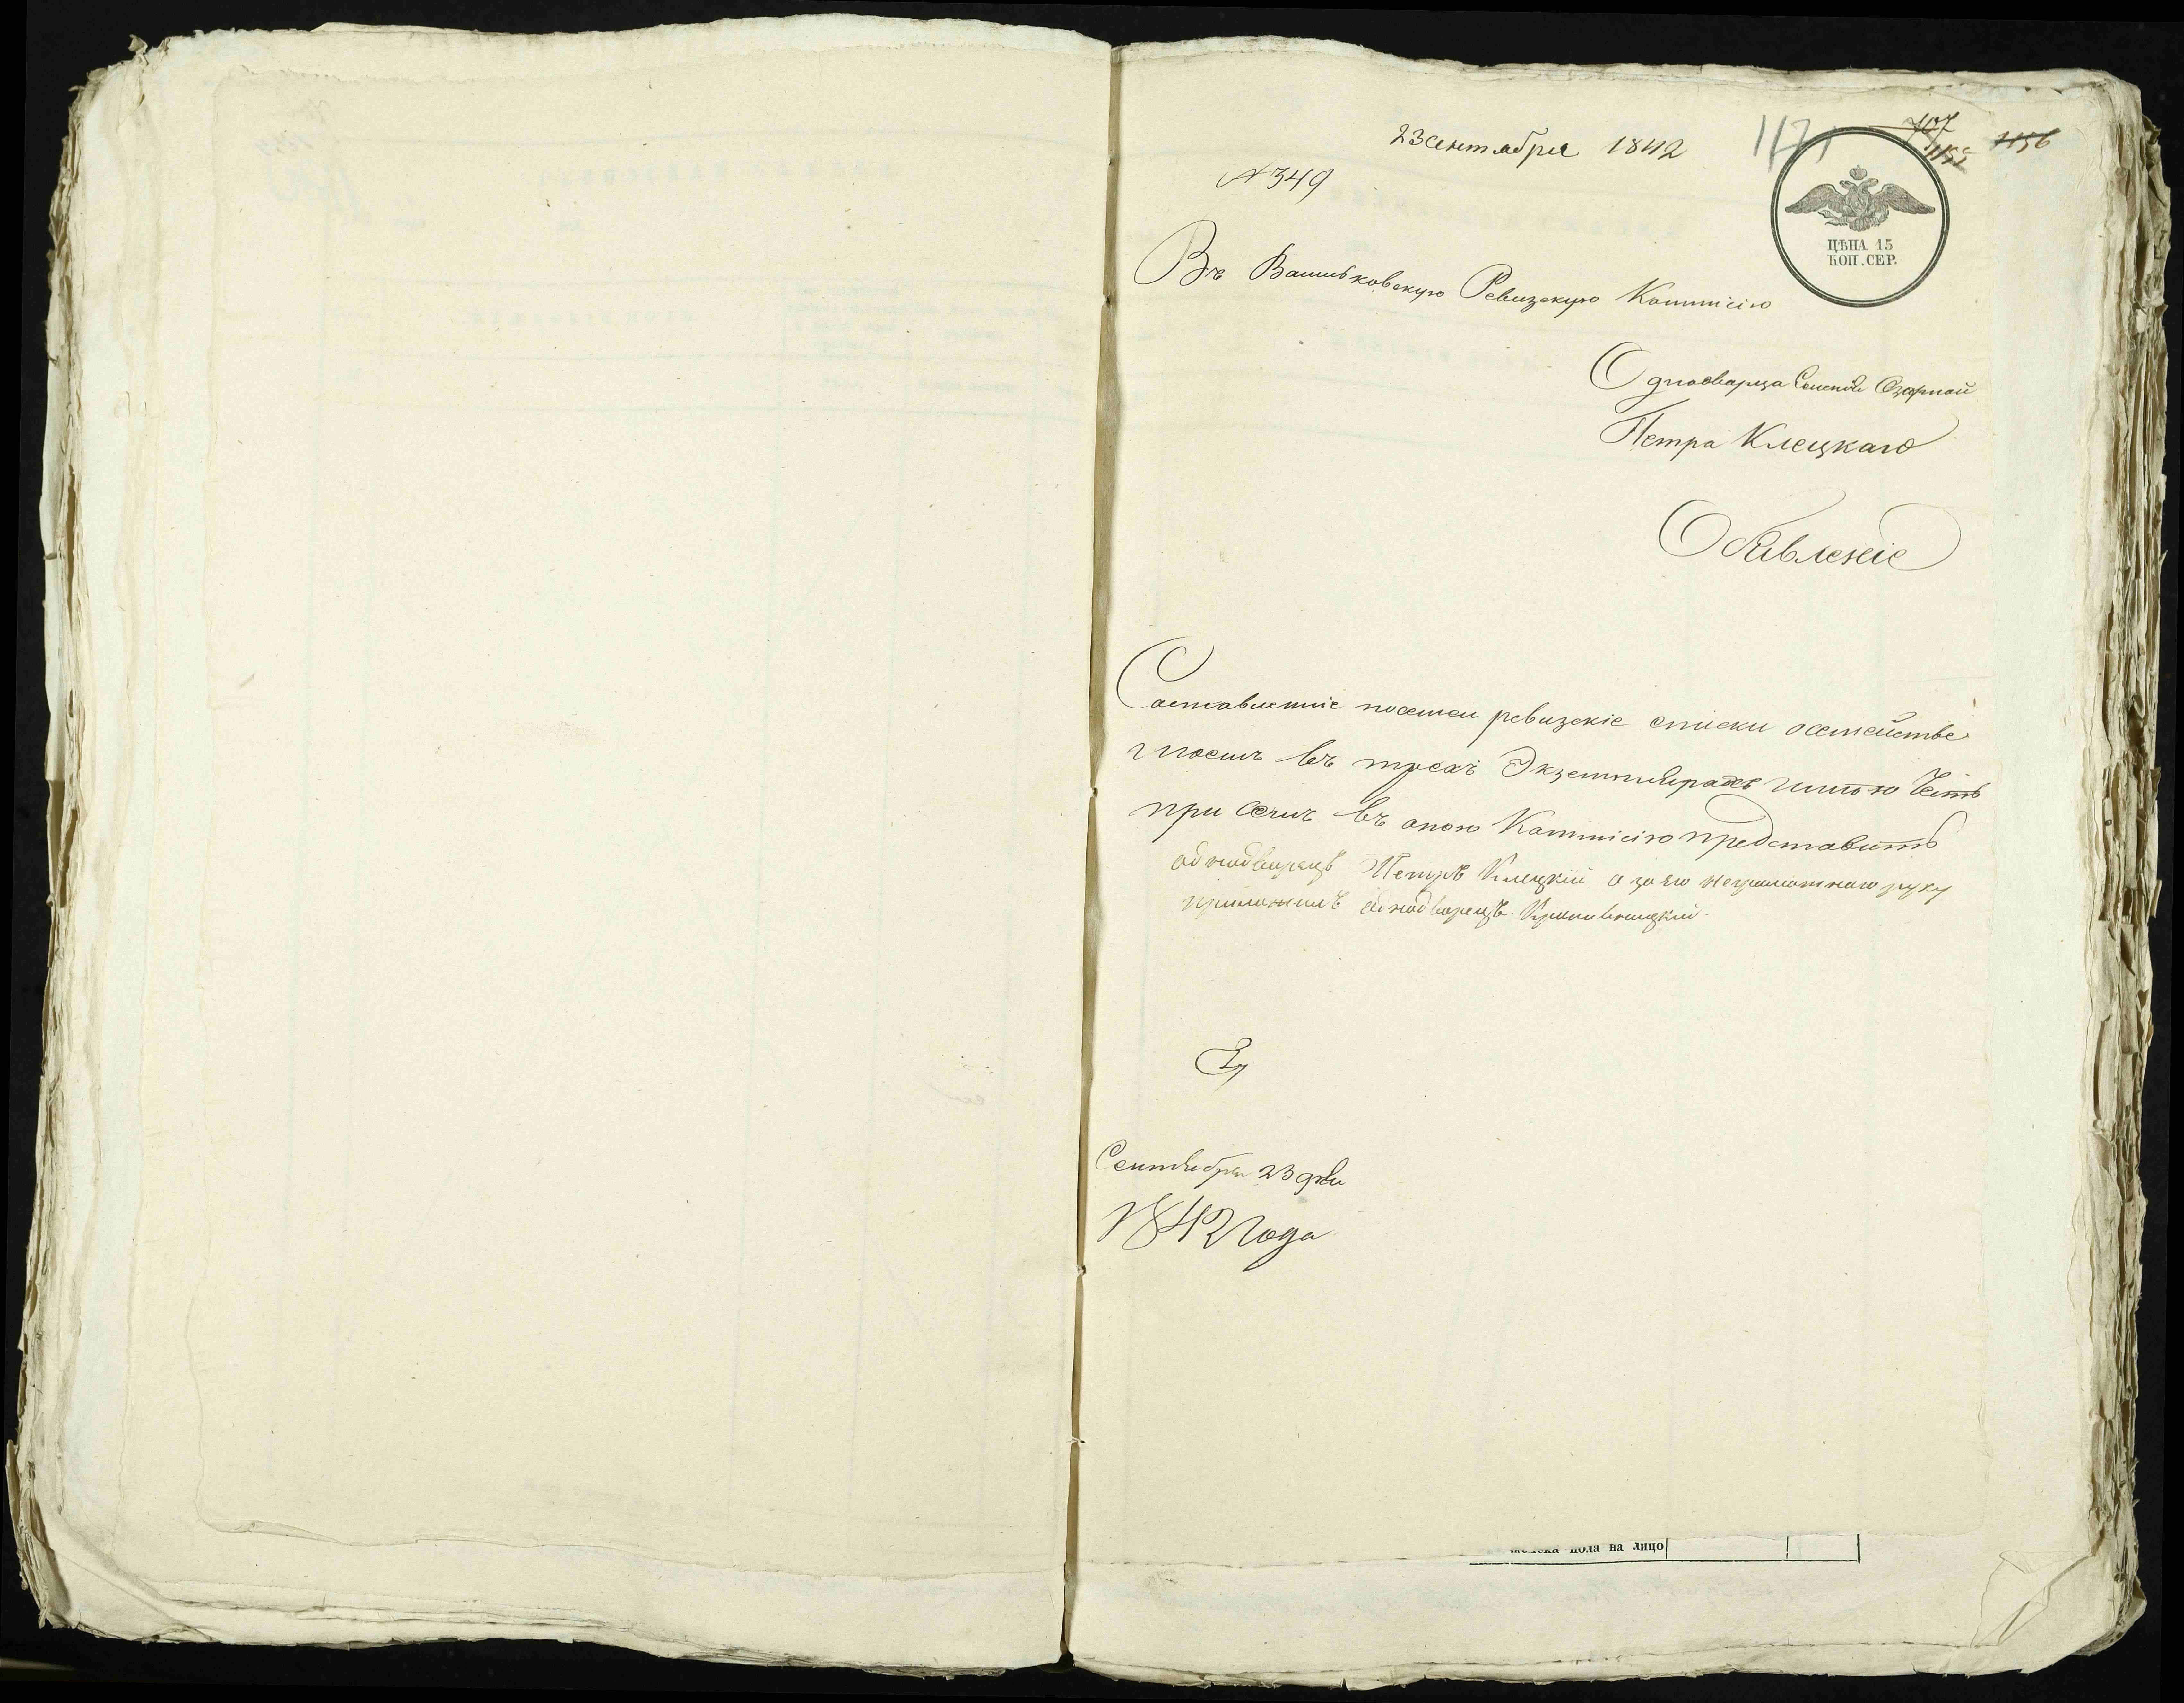 23 Сентября 1842
1171
707
1155
1156
№ 349
ЦѢНА 15
КОП. СЕР.
Въ Васильковскую Ревизскую Коммісію
Однодворца Озерной
Петра Клецкаго
Объявленіе
Составленніе ревизскіе списки осемействе
моемъ въ трехъ Экземплярахъ имѣю Честь
при семъ въ оною Коммісію представить
однодворецъ Петръ Клецкій а за его неграмотнаго руку
приложилъ однодворецъ Крапивницкий
Сентября 23 дня
1842 года
пола на лицо